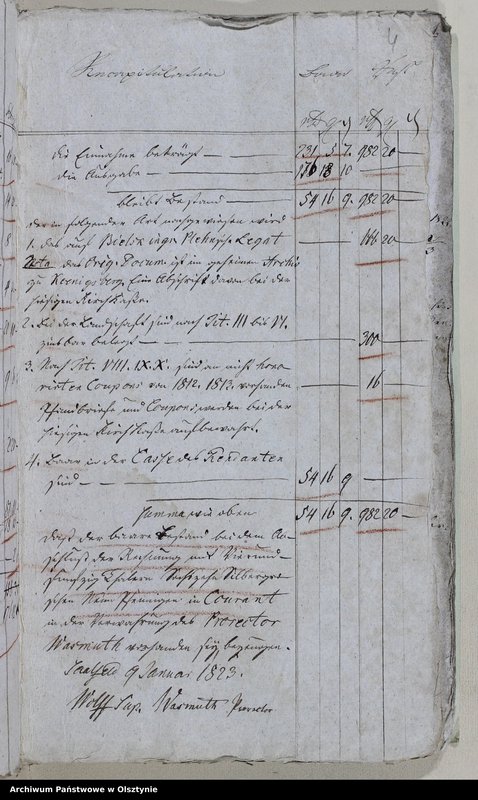 4
Recapitulation Baar
rtl g ₰ rtl g ₰
die Einnahme beträgt — — 231 5 7. 982 20 —
die Ausgabe — — 176 18 10 —
bleibt Bestand — — 54 16 9. 982 20 —
der in folgender Art nachgewiesen wird
1. das auf Legat — 166 20 —
Nota das Orig. Docum. ist im geheimen Archiv
zu Koenigsberg. Eine Abschrift davon bei der
hiesigen Kirchkasse.
2. Bei der Landschaft sind nach Tit. III bis VI.
zinsbar belegt — — 300 —
3. Nach Tit. VIII. IX. X. sind an nicht
Coupons von 1812. 1813. vorhanden — 16 —
Pfandbriefe und Coupons werden bei der
hiesigen Kirchkasse aufbewahrt.
4. Baar in der Casse des Rendanten
sind — — 54 16 9 —
Summa wie oben 54 16 9. 982 20 —
Daß der baare Bestand bei dem Ab-
schluß der Rechnung mit Vierund-
funfzig Thalern Sechszehn Silbergro-
schen Neun Pfennigen in Courant
in der Verwahrung des Prorector
Warmuth vorhanden sey, bezeugen.
Saalfeld 9 Januar 1823.
Wolff Sup. Warmuth Prorector
Archiwum Państwowe w Olsztynie